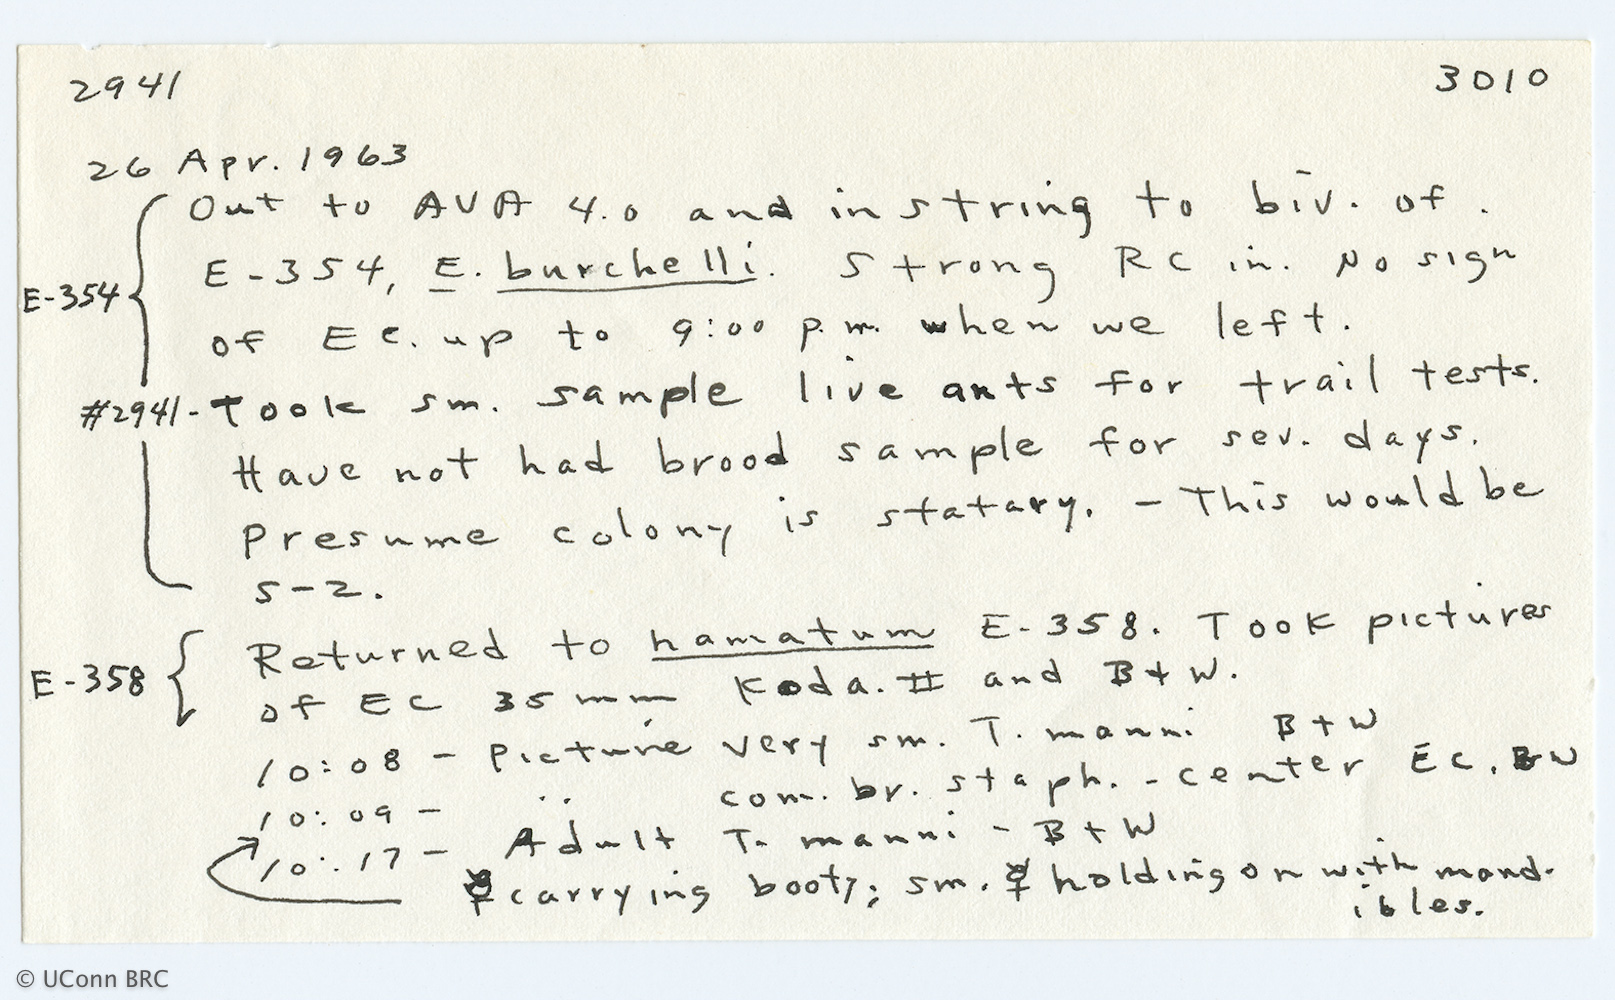 2941 3010
26 Apr. 1963
Out to AVA 4.0 and in string to biv. of
E-354, E. burchelli. Strong RC in. No sign
E-354
of EC. up to 9:00 p.m. when we left.
#2941 - Took sm. sample live ants for trail tests.
Have not had brood sample for sev. days.
Presume colony is statary. - This would be
S-2.
Returned to hamatum E-358. Took pictures
E-358
of EC 35 mm Koda. II and B+W.
10:08 - Picture very sm. T. manni B+W
10:09 - " com. br. staph. - center EC. BW
10:17 - Adult T. manni - B+W
☿ carrying booty; sm. ☿ holding on with mand-
ibles.
© UConn BRC